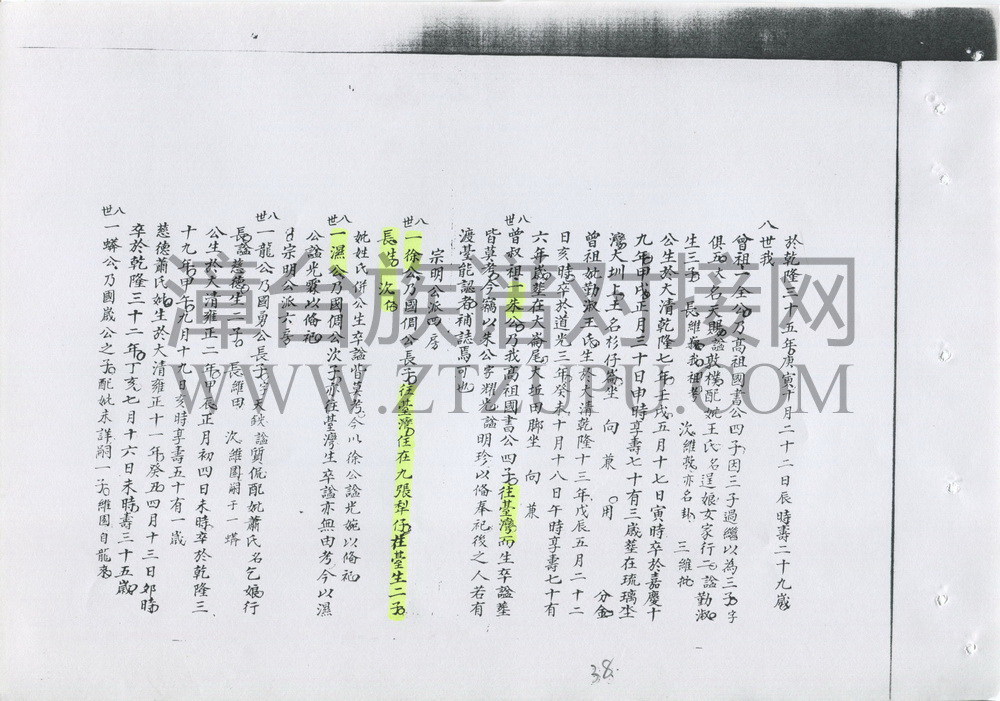 於乾隆三十五年庚寅十月二十二日辰時壽二十九歲
八世我
曾祖一全公乃高祖國書公四子因三子過繼以為三子字
俱五大名天賜諡敦樸配妣王氏名逞娘女家行二諡勤淑
生三子 長維 我祖考 次維 亦名卦 三維
公生於大清乾隆七年壬戌五月十七日寅時卒於嘉慶十
九年甲戌正月三十日申時享壽七十有三歲塟在琉璃坐
灣大圳上土名杉仔崙坐 向 兼 用 分金
曾祖妣勤淑王氏生於大清乾隆十三年戊辰五月二十二
日亥時卒於道光三年癸未十月十八日午時享壽七十有
六年歲塟在大崙尾大坵田脚坐 向 兼
八世
曾叔祖一朱公乃我高祖國書公四子往臺灣而生卒諡塟
皆莫考今竊以朱公字耀光諡明珍以俻奉祀後之人若有
渡臺能認者補誌焉可也
宗明公派四房
八世
一徐公乃國倜公長子往臺灣住在九張犁仔往臺生二子
長 次
妣姓氏併公生卒諡皆莫考今以徐公諡光婉以俻祀
八世
一濕公乃國倜公次子亦在臺灣生卒諡亦無由考今以濕
公諡光 以俻祀
宗明公派六房
八世
一龍公乃國勇公長子字天欽諡質侃配妣蕭氏名乞娘行
長諡慈德生二子 長維田 次維園嗣于一蟒
公生於大清雍正二年甲辰正月初四日未時卒於乾隆三
十九年甲午九月十九日亥時享壽五十有一歲
慈德蕭氏妣生於大清雍正十一年癸丑四月十三日卯時
卒於乾隆三十二年丁亥七月十六日未時壽三十五歲
八世
一蟒公乃國歲公之子配妣未詳嗣一子維園自龍來
38
漳台族谱对接网
WWW.ZTZUPU.COM